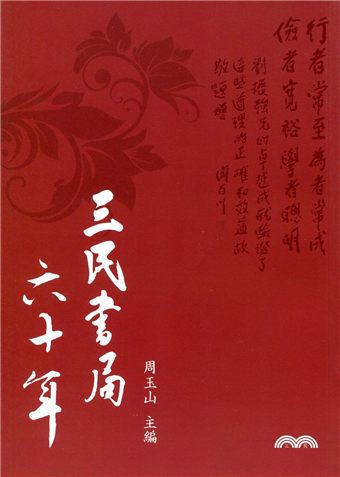 行者常至為者常成
儉者寬裕學者聰明
劉振強先生的卓越成就驗證了
這些道理的正確和效益故
敬題贈
三民書局
六十年
周玉山 主編